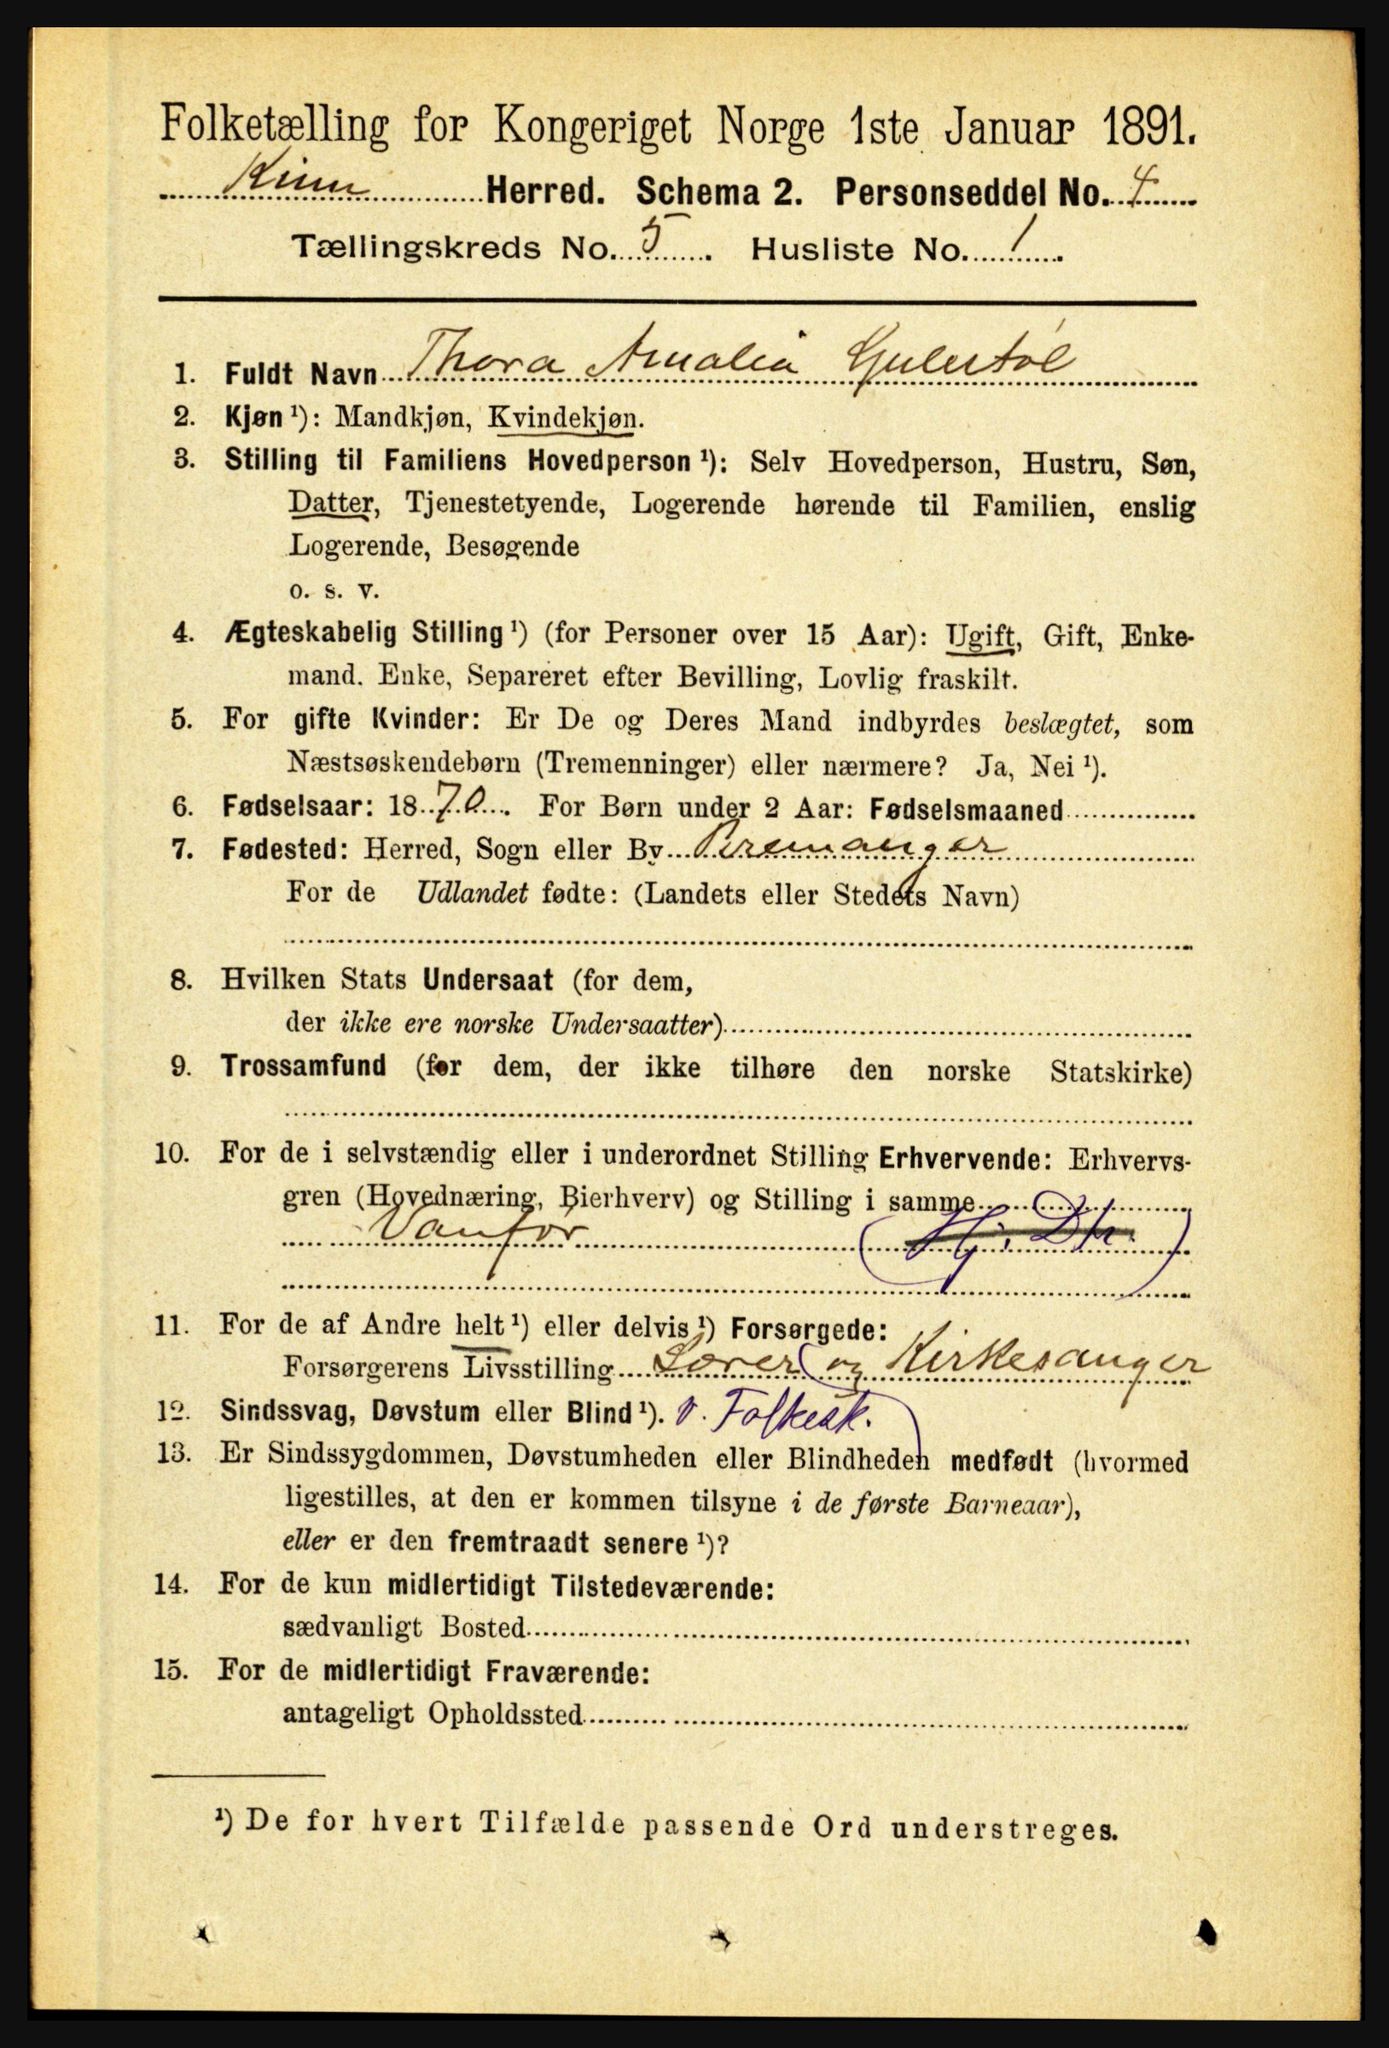 Folketælling for Kongeriget Norge 1ste Januar 1891.
Kinn Herred. Schema 2. Personseddel No. 4
Tællingskreds No. 5. Husliste No. 1.
1. Fuldt Navn Thora Amalia Gulestøl
2. Kjøn ¹): Mandkjøn, Kvindekjøn.
3. Stilling til Familiens Hovedperson ¹): Selv Hovedperson, Hustru, Søn,
Datter, Tjenestetyende, Logerende hørende til Familien, enslig
Logerende, Besøgende
o. s. v.
4. Ægteskabelig Stilling ¹) (for Personer over 15 Aar): Ugift, Gift, Enke-
mand. Enke, Separeret efter Bevilling, Lovlig fraskilt.
5. For gifte Kvinder: Er De og Deres Mand indbyrdes beslægtet, som
Næstsøskendebørn (Tremenninger) eller nærmere? Ja, Nei ¹).
6. Fødselsaar: 1870. For Børn under 2 Aar: Fødselsmaaned
7. Fødested: Herred, Sogn eller By Bremanger
For de Udlandet fødte: (Landets eller Stedets Navn)
8. Hvilken Stats Undersaat (for dem,
der ikke ere norske Undersaatter)
9. Trossamfund (for dem, der ikke tilhøre den norske Statskirke)
10. For de i selvstændig eller i underordnet Stilling Erhvervende: Erhvervs-
gren (Hovednæring, Bierhverv) og Stilling i samme
Vanfør (Hj. Dtr.)
11. For de af Andre helt ¹) eller delvis ¹) Forsørgede:
Forsørgerens Livsstilling Lærer og Kirkesanger
12. Sindssvag, Døvstum eller Blind ¹). v. Folkesk.
13. Er Sindssygdommen, Døvstumheden eller Blindheden medfødt (hvormed
ligestilles, at den er kommen tilsyne i de første Barneaar),
eller er den fremtraadt senere ¹)?
14. For de kun midlertidigt Tilstedeværende:
sædvanligt Bosted
15. For de midlertidigt Fraværende:
antageligt Opholdssted
¹) De for hvert Tilfælde passende Ord understreges.